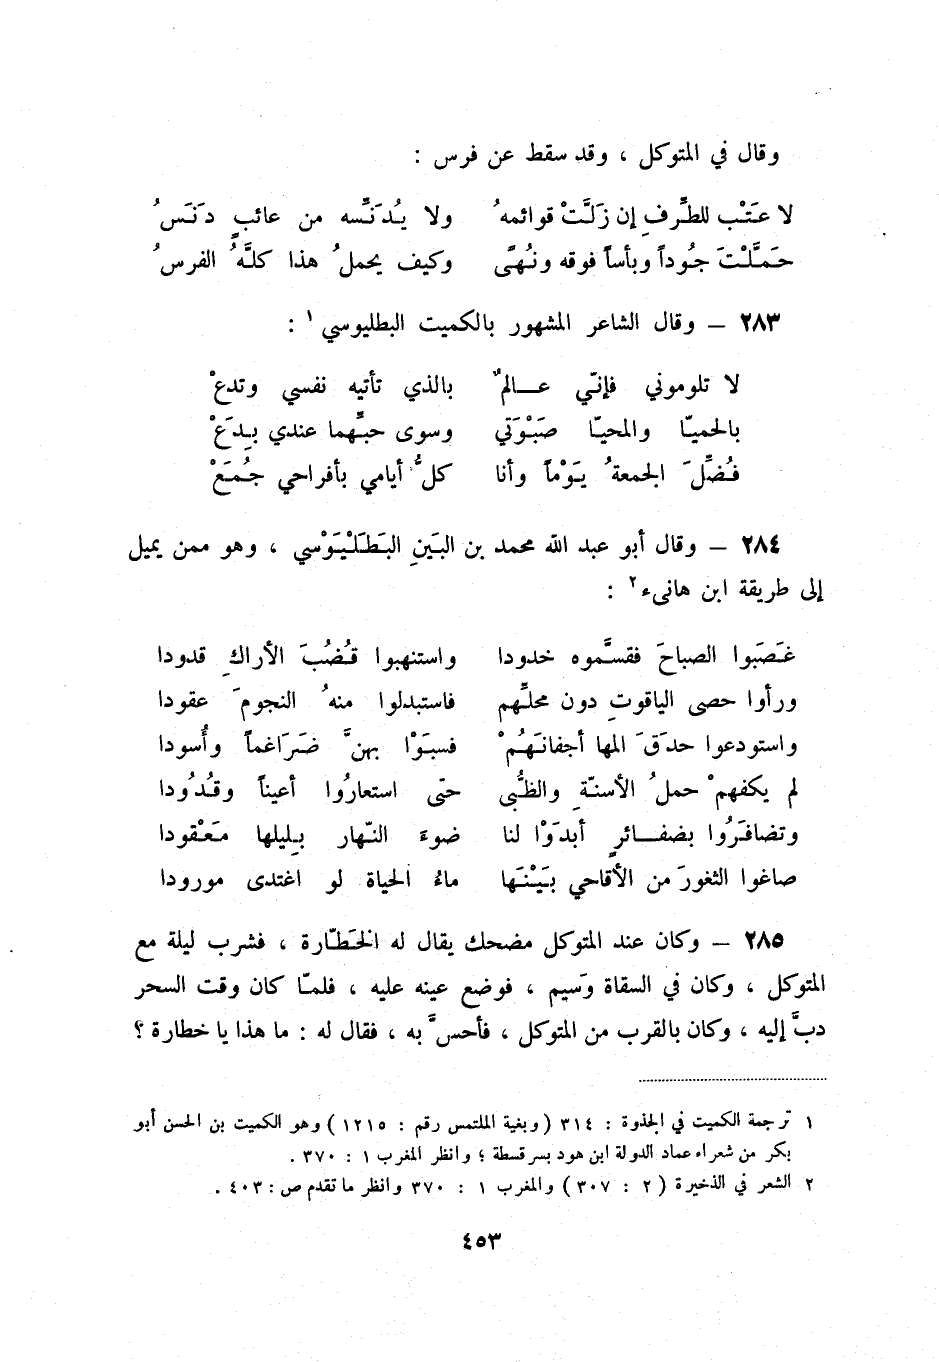 وقال في المتوكل ، وقد سقط عن فرس :
لا عَتْب للطِّرفِ إن زَلَّتْ قوائمهُ ولا يُدَنِّسه من عائبٍ دَنَسُ
حَمَّلْتَ جُوداً وبأساً فوقه ونُهًى وكيف يحملُ هذا كلَّهُ الفرسُ
٢٨٣ – وقال الشاعر المشهور بالكميت البطليوسي ١ :
لا تلوموني فإنّي عالمٌ بالذي تأتيه نفسي وتدعْ
بالحميّا والمحيّا صَبْوَتي وسوى حبِّهما عندي بِدَعْ
فُضِّلَ الجمعةُ يَوْماً وأنا كلُّ أيامي بأفراحي جُمَعْ
٢٨٤ – وقال أبو عبد الله محمد بن البَينِ البَطَلْيَوْسي ، وهو ممن يميل
إلى طريقة ابن هانىء ٢ :
غَصَبوا الصباحَ فقسَّموه خدودا واستنهبوا قُضُبَ الأراكِ قدودا
ورأوا حصى الياقوتِ دون محلِّهم فاستبدلوا منهُ النجومَ عقودا
واستودعوا حدَقَ المها أجفانَهُمْ فسبَوْا بهنَّ ضَرَاغماً وأُسودا
لم يكفهمْ حملُ الأسنّةِ والظُّبى حتّى استعارُوا أعيناً وقُدُودا
وتضافَرُوا بضفائرٍ أبدَوْا لنا ضوءَ النّهار بِليلها مَعْقودا
صاغوا الثغورَ من الأقاحي بَيْنَها ماءُ الحياة لو اغتدى مورودا
٢٨٥ – وكان عند المتوكل مضحك يقال له الخَطّارة ، فشرب ليلة مع
المتوكل ، وكان في السقاة وَسيم ، فوضع عينه عليه ، فلمّا كان وقت السحر
دبَّ إليه ، وكان بالقرب من المتوكل ، فأحسَّ به ، فقال له : ما هذا يا خطارة ؟
١ ترجمة الكميت في الجذوة : ٣١٤ ( وبغية الملتمس رقم : ١٢١٥ ) وهو الكميت بن الحسن أبو
بكر من شعراء عماد الدولة ابن هود بسرقسطة ؛ وانظر المغرب ١ : ٣٧٠ .
٢ الشعر في الذخيرة ( ٢ : ٣٠٧ ) والمغرب ١ : ٣٧٠ وانظر ما تقدم ص : ٤٠٣ .
٤٥٣